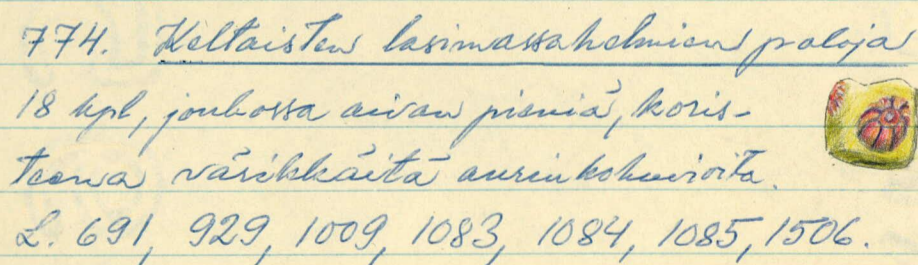 774. Keltaisten lasimassahelmien paloja
18 kpl, joukossa aivan pieniä, koris-
teena värikkäitä aurinkokuvioita.
L. 691, 929, 1009, 1083, 1084, 1085, 1506.